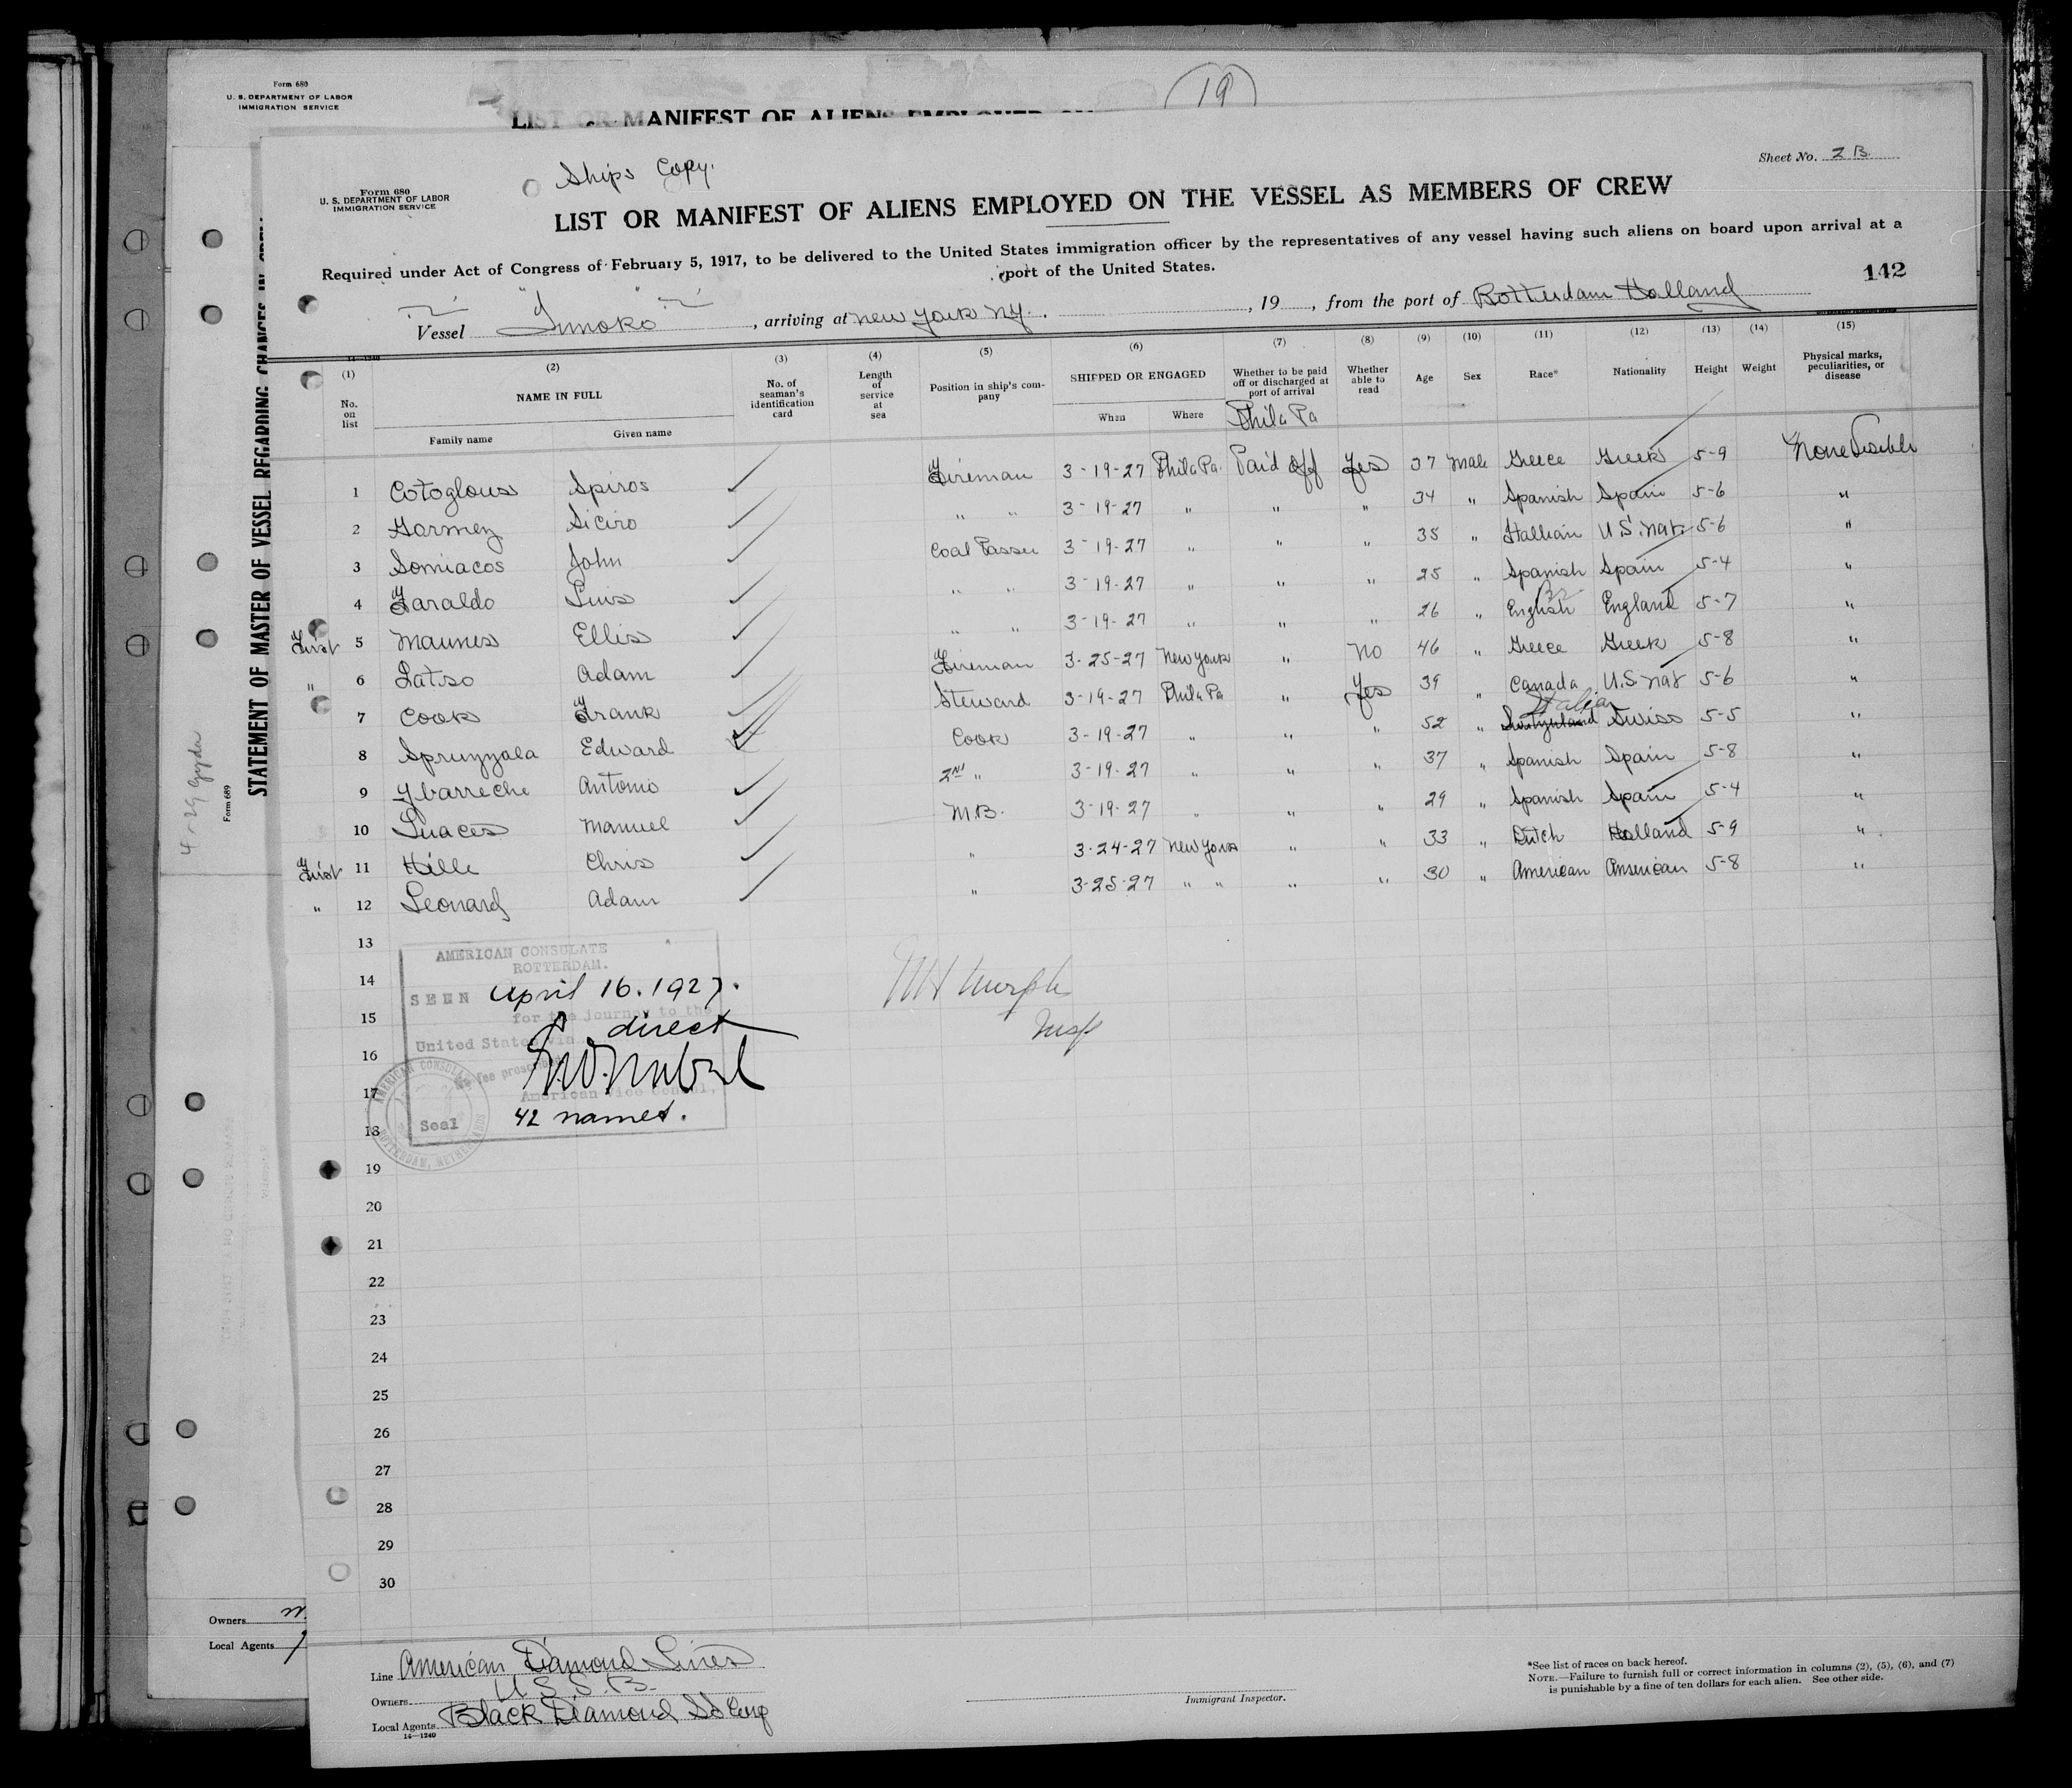 Form 680
U. S. DEPARTMENT OF LABOR
IMMIGRATION SERVICE
19
LIST OR MANIFEST OF ALIENS EMPLOYED ON
Ships Copy.
Sheet No. 2 B.
Form 680
U. S. DEPARTMENT OF LABOR
IMMIGRATION SERVICE
LIST OR MANIFEST OF ALIENS EMPLOYED ON THE VESSEL AS MEMBERS OF CREW
Required under Act of Congress of February 5, 1917, to be delivered to the United States immigration officer by the representatives of any vessel having such aliens on board upon arrival at a
port of the United States.
142
Vessel , arriving at new york ny. , 19 , from the port of Rotterdam Holland
(1) (2) (3) (4) (5) (6) (7) (8) (9) (10) (11) (12) (13) (14) (15)
No. on list NAME IN FULL Family name Given name No. of seaman's identification card Length of service at sea Position in ship's company SHIPPED OR ENGAGED When Where Whether to be paid off or discharged at port of arrival Whether able to read Age Sex Race* Nationality Height Weight Physical marks, peculiarities, or disease
Phila Pa
1 Cotoglous Spiros Fireman 3-19-27 Phila Pa. Paid Off Yes 37 male Greece Greek 5-9 None Visible
2 Gormez Siciro " " 3-19-27 " " " 34 " Spanish Spain 5-6 "
3 Somiacos John Coal Passer 3-19-27 " " " 35 " Itallian U.S. nat. 5-6 "
4 Faraldo Luis " " 3-19-27 " " " 25 " Spanish Spain 5-4 "
First 5 Maunes Ellis " " 3-19-27 " " " 26 " English England 5-7 "
" 6 Latso Adam Fireman 3-25-27 New York " No 46 " Greece Greek 5-8 "
7 Cook Frank Steward 3-19-27 Phila Pa " Yes 39 " Canada U.S. nat 5-6 "
Italian
8 Spruzzala Edward Cook 3-19-27 " " " 52 " Switzerland Swiss 5-5 "
9 Ybarreche Antonio 2nd " 3-19-27 " " " 37 " Spanish Spain 5-8 "
10 Luaces Manuel M.B. 3-19-27 " " " 29 " Spanish Spain 5-4 "
First 11 Hille Chris " 3-24-27 New York " " 33 " Dutch Holland 5-9 "
" 12 Leonard Adam " 3-25-27 " " " " 30 " American American 5-8 "
13
14
15
16
17
18
19
20
21
22
23
24
25
26
27
28
29
30
AMERICAN CONSULATE
ROTTERDAM.
SEEN April 16. 1927.
for the journey to the
United States via direct
No fee prescribed
American Vice Consul,
Seal 42 names.
AMERICAN CONSULAR
ROTTERDAM, NETHERLANDS
Insp
STATEMENT OF MASTER OF VESSEL REGARDING CHANGES IN CREW
Form 689
Owners
Local Agents
Line American Diamond Lines
Owners U S S. B.
Local Agents Black Diamond SS Corp
16—1240
Immigrant Inspector.
*See list of races on back hereof.
NOTE.—Failure to furnish full or correct information in columns (2), (5), (6), and (7)
is punishable by a fine of ten dollars for each alien. See other side.